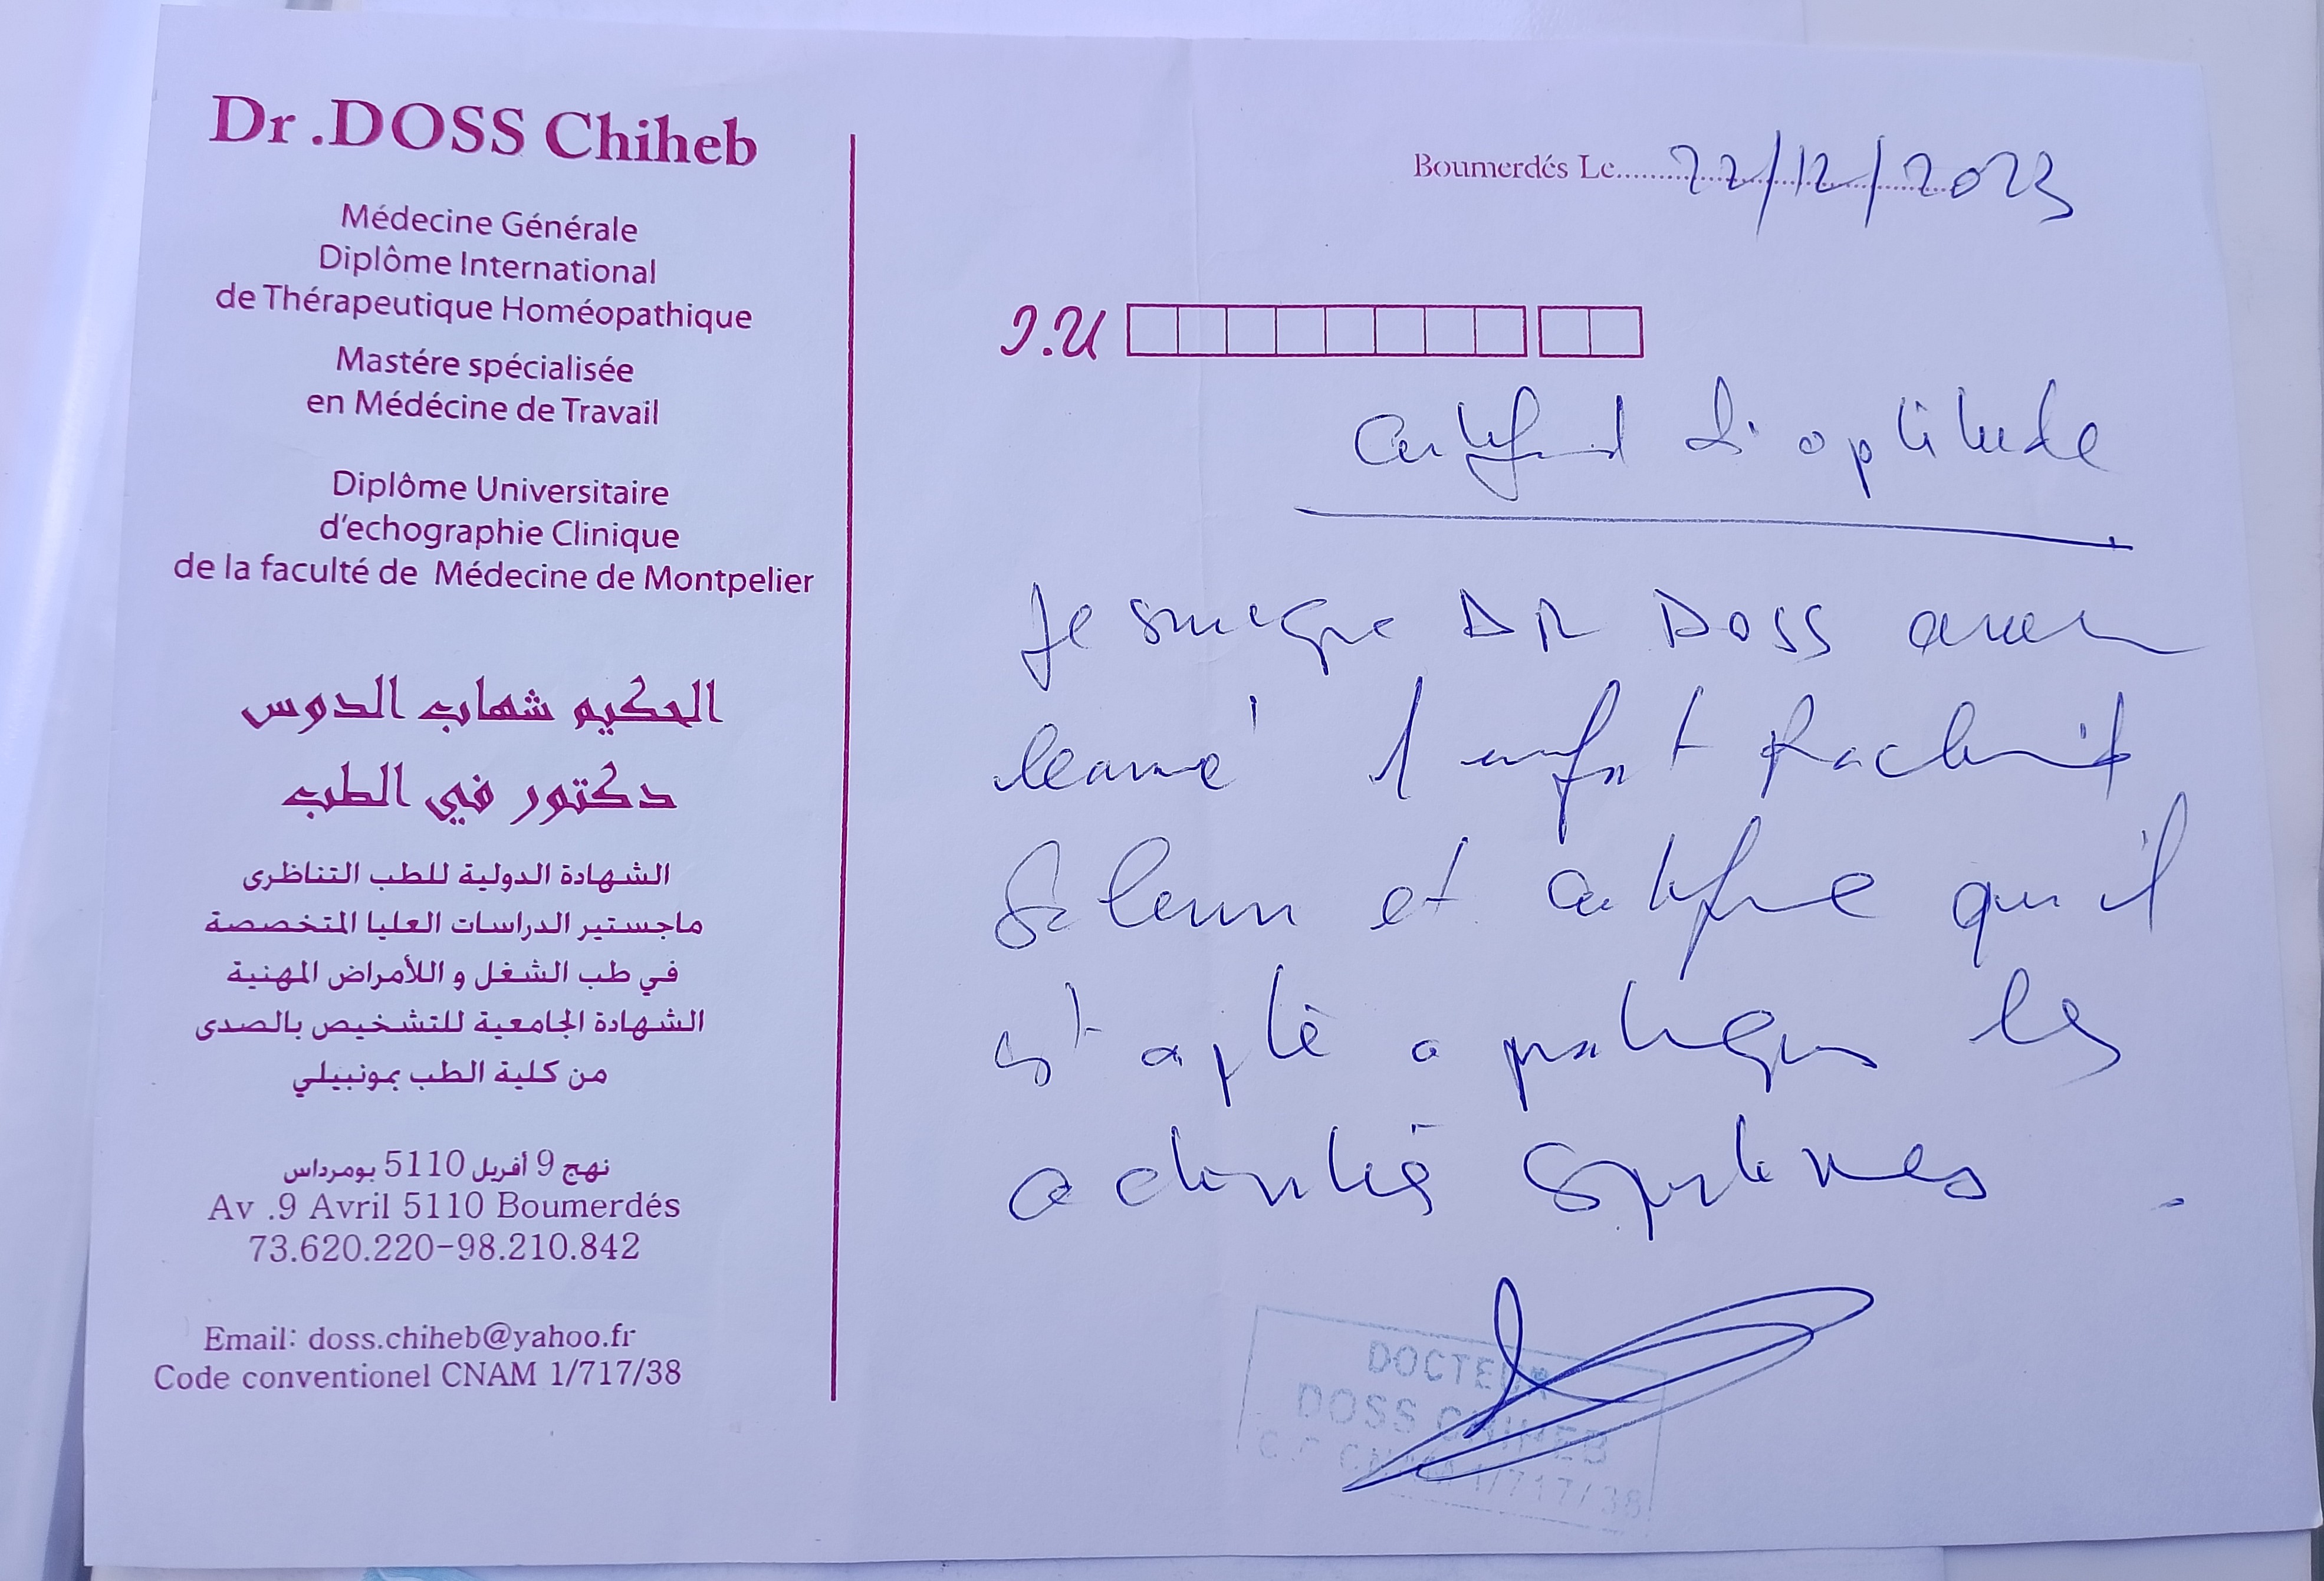 Dr .DOSS Chiheb
Médecine Générale
Diplôme International
de Thérapeutique Homéopathique
Mastére spécialisée
en Médécine de Travail
Diplôme Universitaire
d'echographie Clinique
de la faculté de Médecine de Montpelier
الحكيم شهاب الدوس
دكتور في الطب
الشهادة الدولية للطب التناظرى
ماجستير الدراسات العليا المتخصصة
في طب الشغل و اللأمراض المهنية
الشهادة الجامعية للتشخيص بالصدى
من كلية الطب بمونبيلي
نهج 9 أفريل 5110 بومرداس
Av .9 Avril 5110 Boumerdés
73.620.220-98.210.842
Email: doss.chiheb@yahoo.fr
Code conventionel CNAM 1/717/38
Boumerdés Le 22/12/2023
I.U
Certificat d'aptitude
Je soussigné DR DOSS avoir
examiné l'enfant
et certifie qu'il
est apte a pratiquer les
activités sportives.
DOCTEUR
DOSS CHIHEB
C.C CNAM 1/717/38